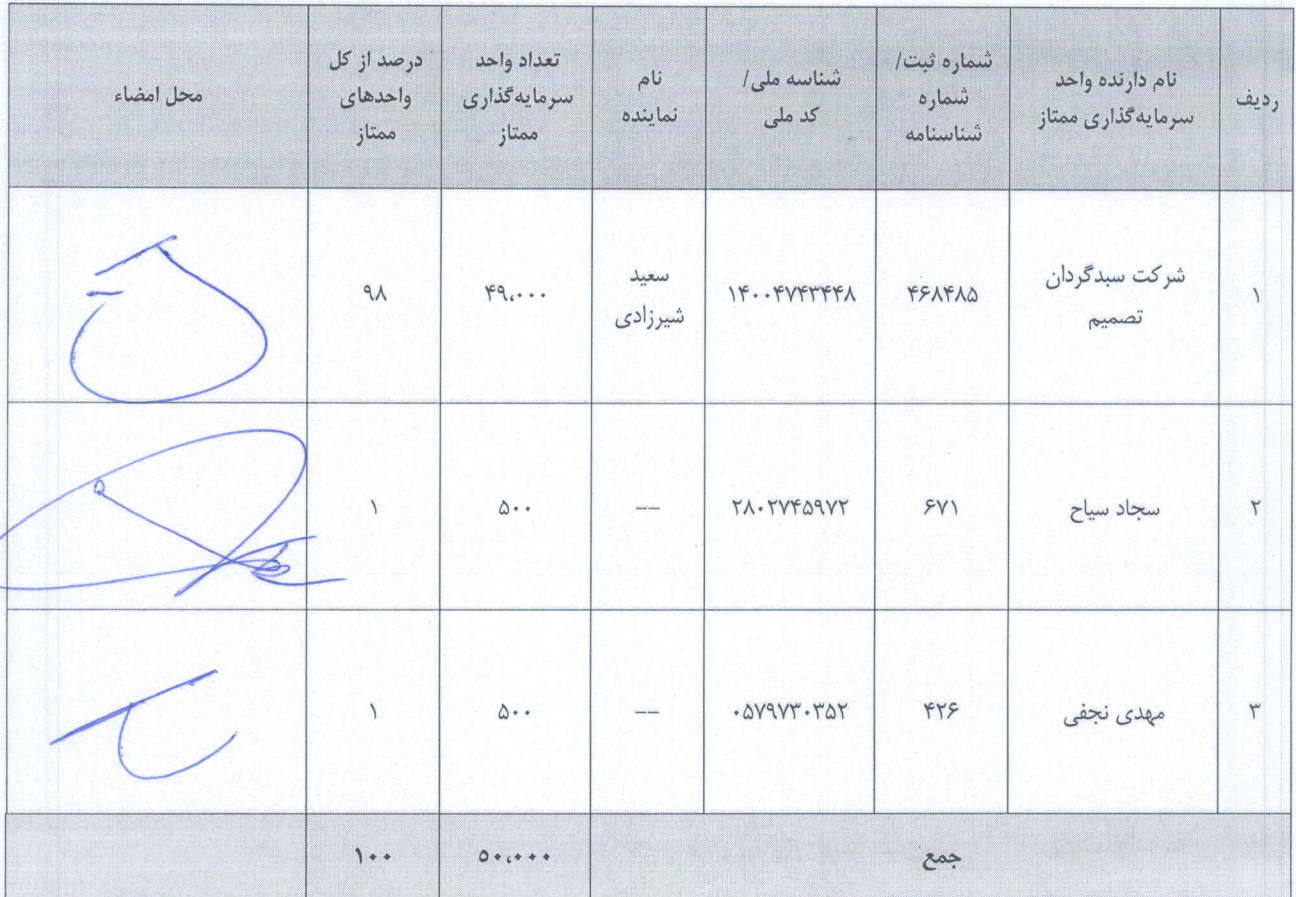 ردیف
نام دارنده واحد
سرمایه‌گذاری ممتاز
شماره ثبت/
شماره
شناسنامه
شناسه ملی/
کد ملی
نام
نماینده
تعداد واحد
سرمایه‌گذاری
ممتاز
درصد از کل
واحدهای
ممتاز
محل امضاء
۱
شرکت سبدگردان
تصمیم
۴۶۸۴۸۵
۱۴۰۰۴۷۴۳۴۴۸
سعید
شیرزادی
۴۹,۰۰۰
۹۸
۲
سجاد سیاح
۶۷۱
۲۸۰۲۷۴۵۹۷۲
---
۵۰۰
۱
۳
مهدی نجفی
۴۲۶
۰۵۷۹۷۳۰۳۵۲
---
۵۰۰
۱
جمع
۵۰,۰۰۰
۱۰۰